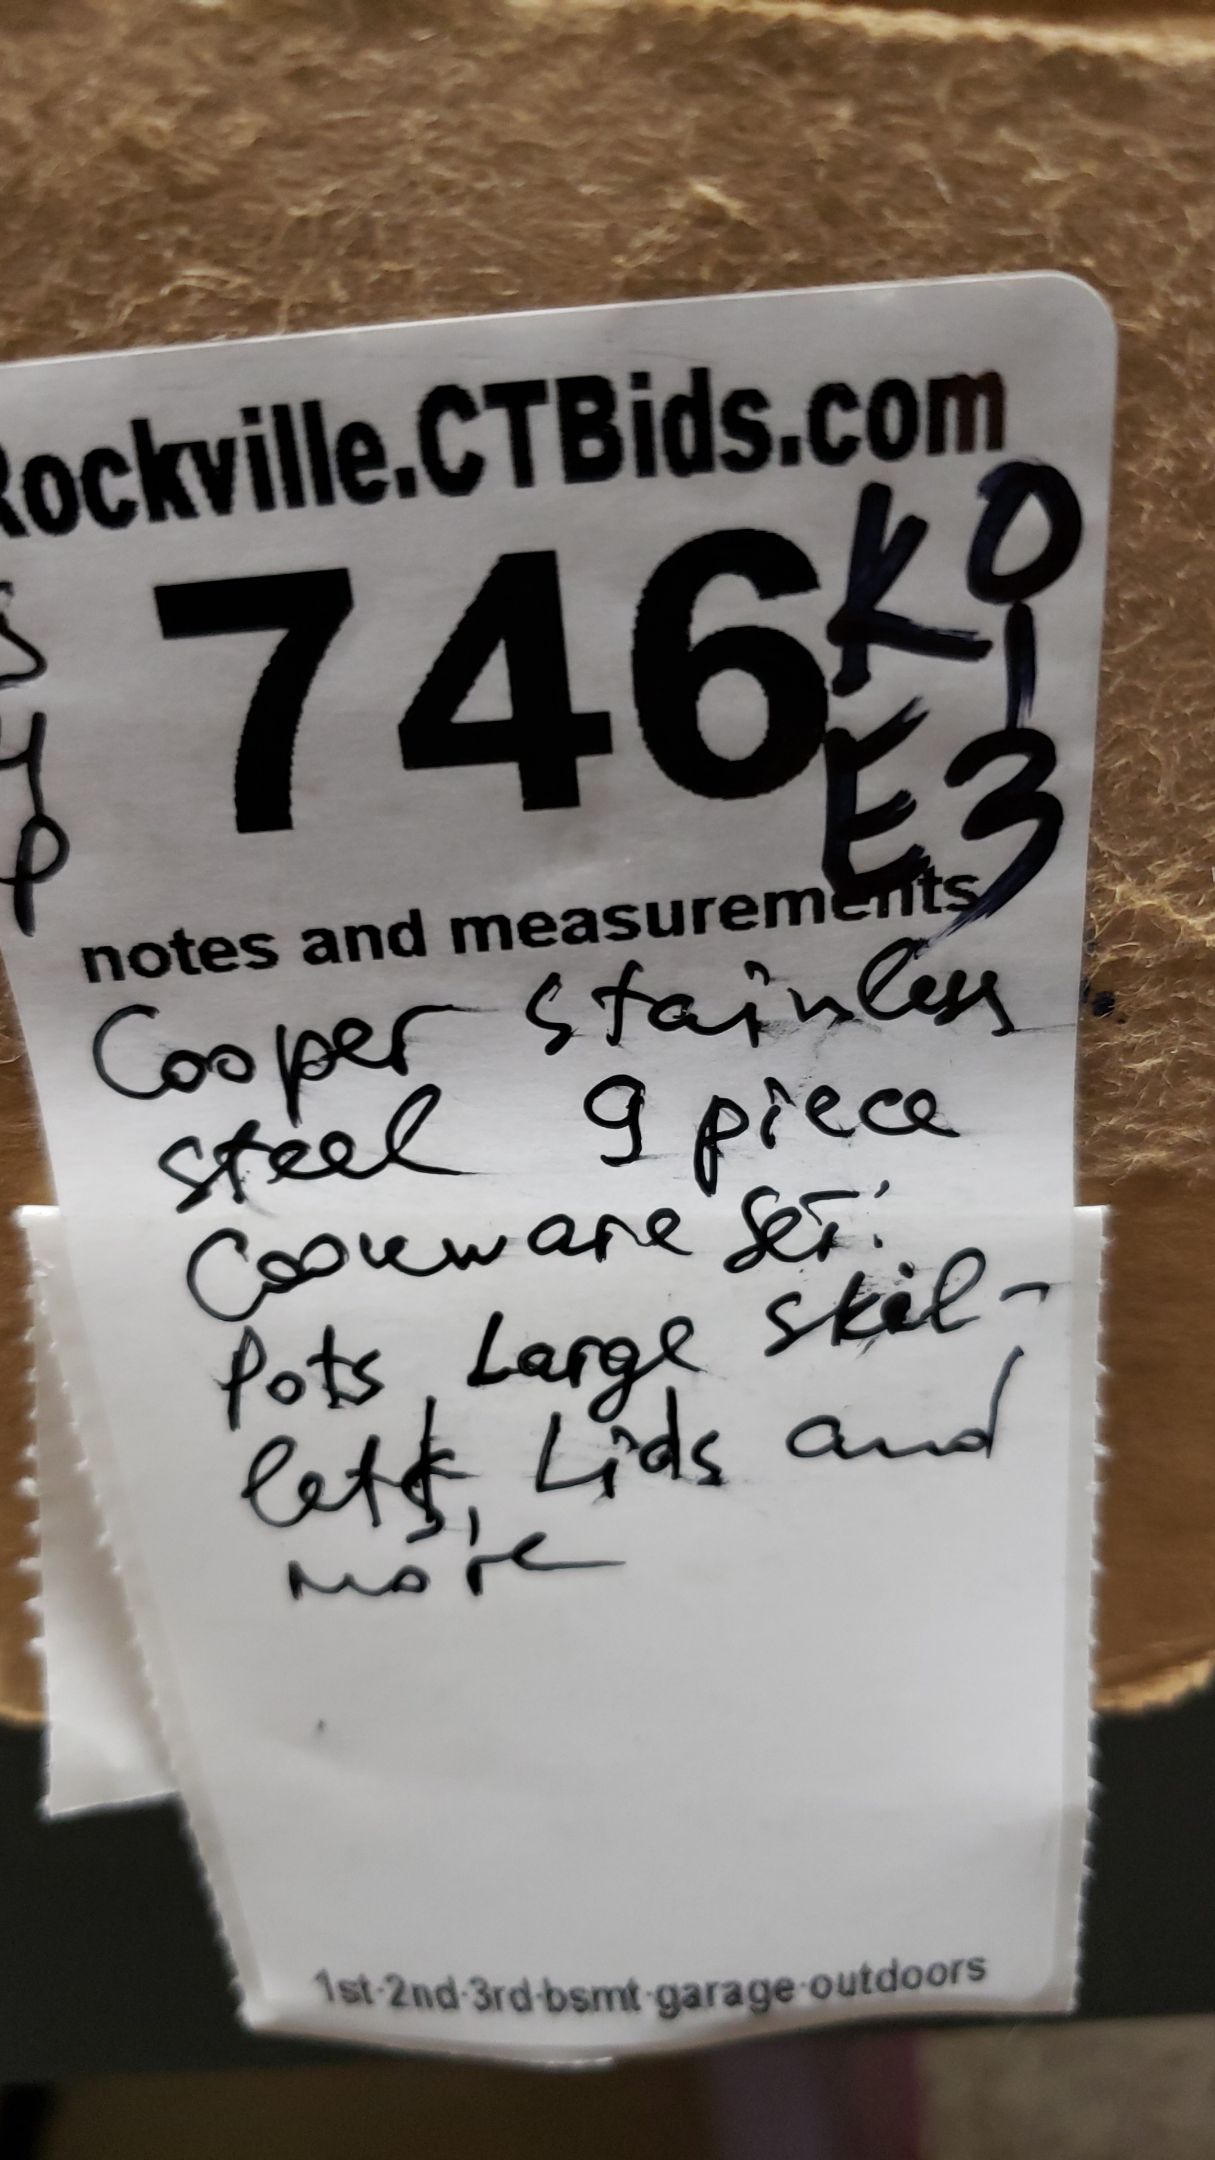 Rockville.CTBids.com
746
K 0
1
E 3
S
4
P
notes and measurements
Cooper Stainless
steel 9 piece
Cookware Set:
Pots, Large skil-
lets, Lids and
more
1st·2nd·3rd·bsmt·garage·outdoors